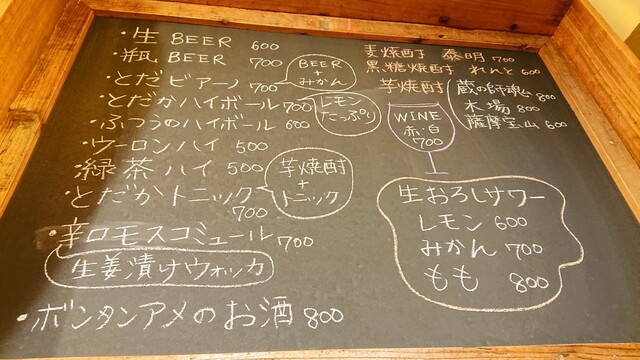 ・生BEER 600
・瓶BEER 700
・とだビアーノ 700
BEER
+
みかん
・とだかハイボール 700
レモン
たっぷり
・ふつうのハイボール 600
・ウーロンハイ 500
・緑茶ハイ 500
・とだかトニック
700
芋焼酎
+
トニック
・辛口モスコミュール 700
生姜漬けウォッカ
・ボンタンアメのお酒 800
麦焼酎 泰明 700
黒糖焼酎 れんと 600
芋焼酎
蔵の師魂 800
木場 800
薩摩宝山 600
WINE
赤・白
700
生おろしサワー
レモン 600
みかん 700
もも 800